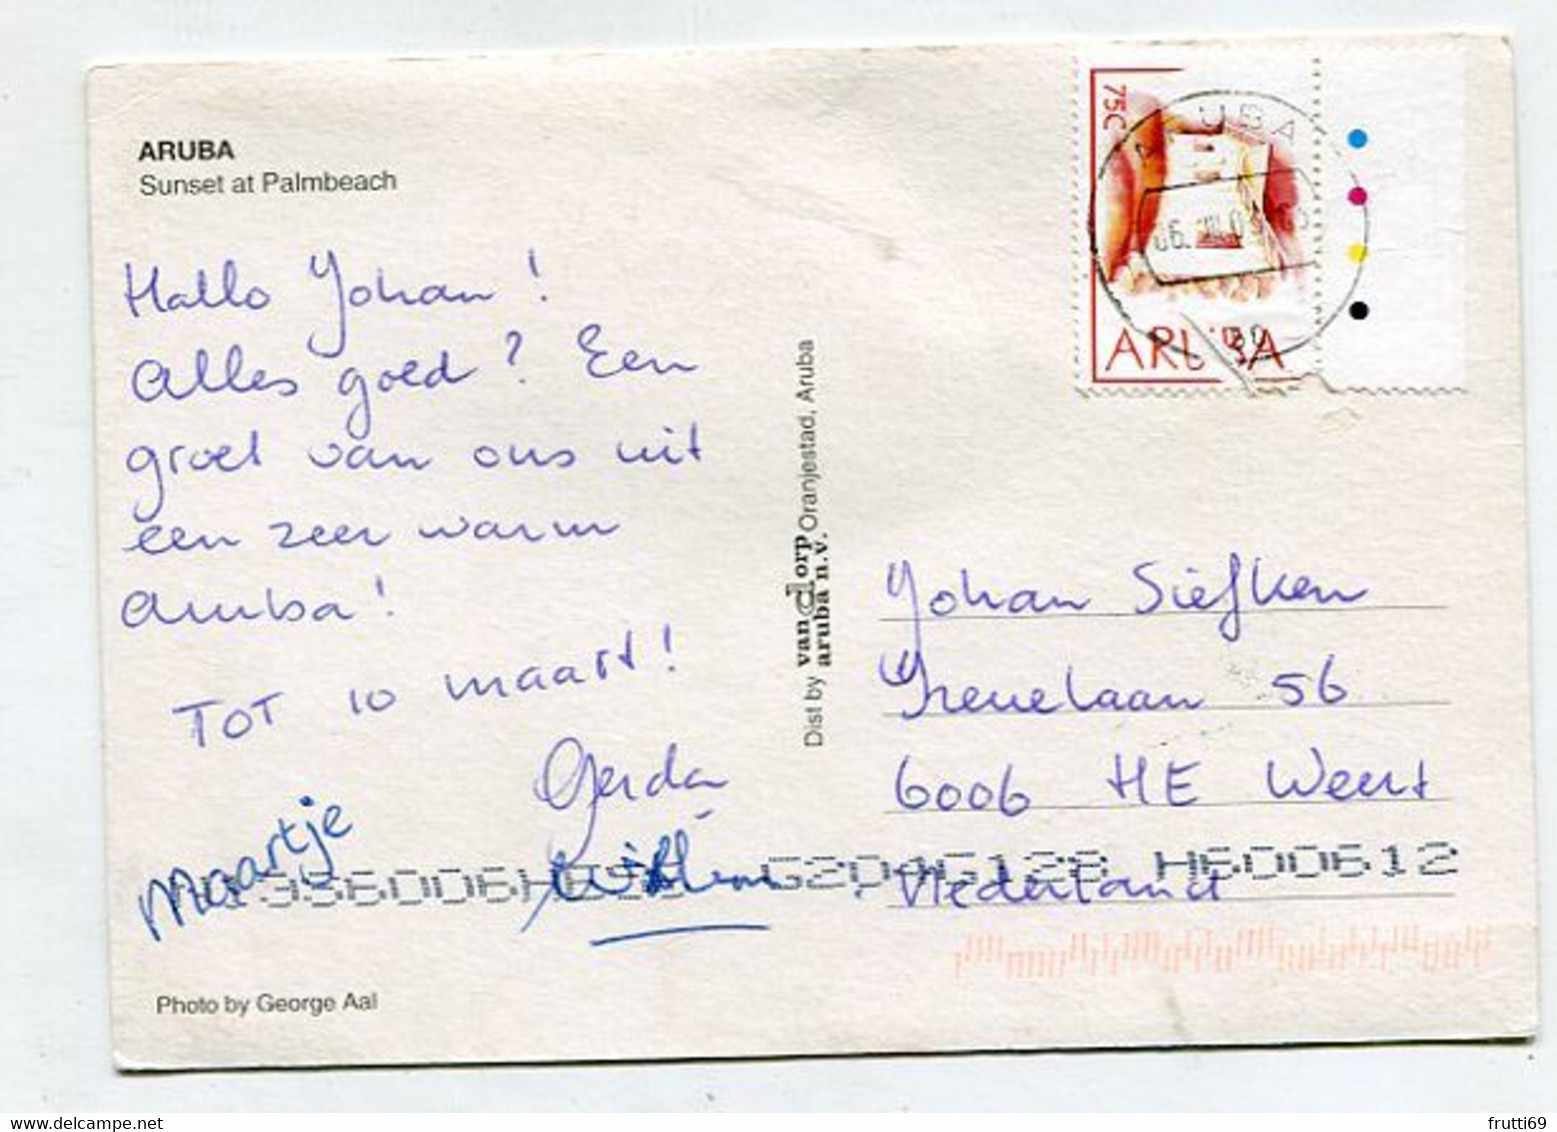 ARUBA
Sunset at Palmbeach
Hallo Johan!
Alles goed? Een
groet van ons uit
een zeer warm
Aruba!
TOT 10 maart!
Gerda
Maartje
Willem
Photo by George Aal
Dist by van dorp aruba n.v. Oranjestad, Aruba
75c
ARUBA
ARUBA
Johan Siefken
Irenelaan 56
6006 HE Weert
Nederland
G204G128 H600612
www.delcampe.net
frutti69